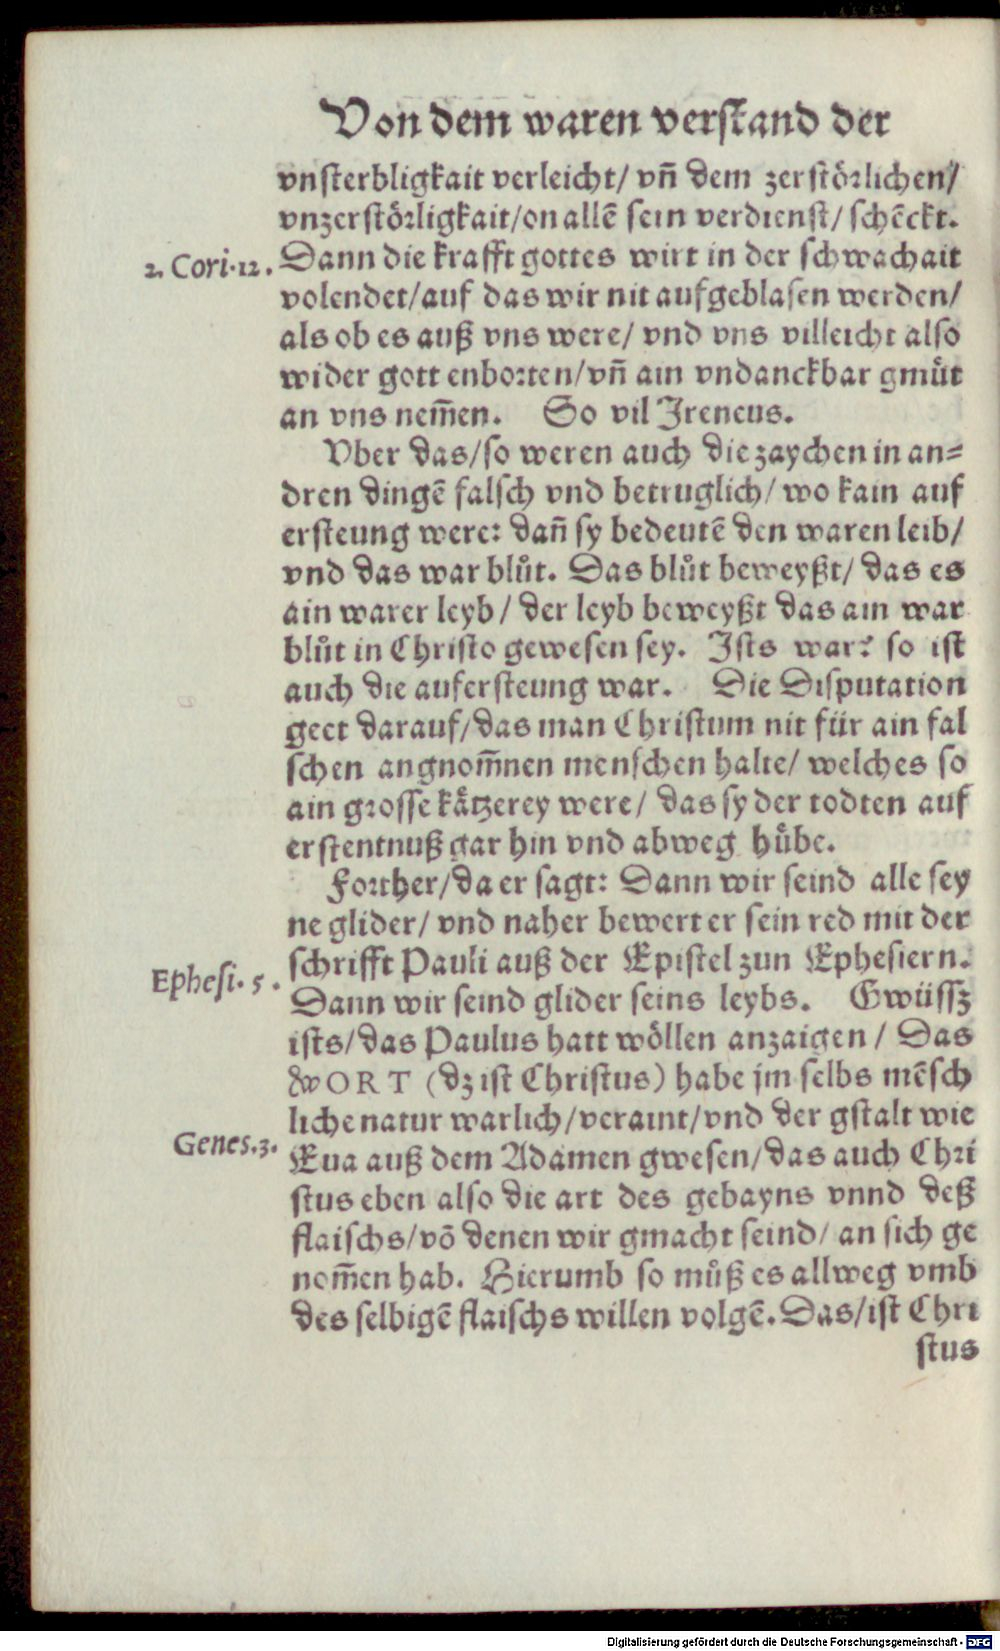 Von dem waren verstand der
vnsterbligkait verleicht/ vñ dem zerstörlichen/
vnzerstörligkait/on allē sein verdienst/ schēckt.
2. Cori. 12. Dann die krafft gottes wirt in der schwachait
volendet/auf das wir nit aufgeblasen werden/
als ob es auß vns were/ vnd vns villeicht also
wider gott enborten/vñ ain vndanckbar gmuͤt
an vns nem̄en. So vil Jreneus.
Vber das/so weren auch die zaychen in an=
dren dingē falsch vnd betruglich/ wo kain auf
ersteung were: dañ sy bedeutē den waren leib/
vnd das war bluͦt. Das bluͦt beweyßt/ das es
ain warer leyb/ der leyb beweyßt das ain war
bluͦt in Christo gewesen sey. Jsts war? so ist
auch die aufersteung war. Die Disputation
geet darauf/das man Christum nit für ain fal
schen angnom̄nen menschen halte/ welches so
ain grosse kaͤtzerey were/ das sy der todten auf
erstentnuß gar hin vnd abweg huͤbe.
Forther/da er sagt: Dann wir seind alle sey
ne glider/ vnd naher bewert er sein red mit der
schrifft Pauli auß der Epistel zun Ephesiern.
Ephesi. 5. Dann wir seind glider seins leybs. Gwüssz
ists/das Paulus hatt wöllen anzaigen/ Das
WORT (dz ist Christus) habe jm selbs mēsch
liche natur warlich/veraint/vnd der gstalt wie
Genes. 3. Eua auß dem Adamen gwesen/das auch Chri
stus eben also die art des gebayns vnnd deß
flaischs/vō denen wir gmacht seind/ an sich ge
nom̄en hab. Hierumb so muͦß es allweg vmb
des selbigē flaischs willen volgē. Das/ist Chri
stus
Digitalisierung gefördert durch die Deutsche Forschungsgemeinschaft - DFG